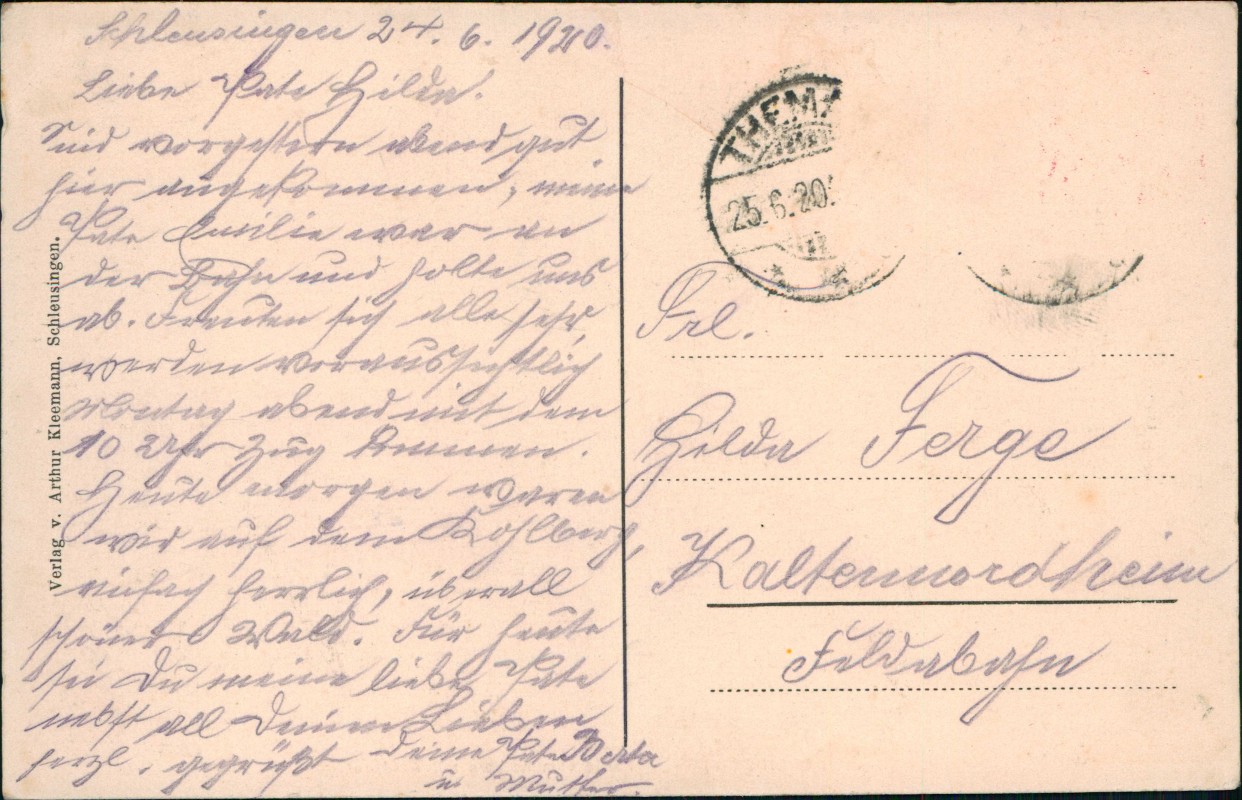 Schleusingen 24. 6. 1920.
Liebe Pate Hilda!
Sind vorgestern abend gut
hier angekommen, meine
Pate Emilie war an
der Bahn und holte uns
ab. Freuten sich alle sehr,
werden voraussichtlich
Montag abend mit dem
10 Uhr Zug kommen.
Heute morgen waren
wir auf dem Kohlberg,
einfach herrlich, überall
schöner Wald. Für heute
sei Du meine liebe Pate
nebst all Deinen Lieben
herzl. gegrüßt Deine Pate Berta
u. Mutter.
Verlag v. Arthur Kleemann, Schleusingen.
THEMA
25.6.20.
Frl.
Hilda Ferge
Kaltennordheim
Feldabahn